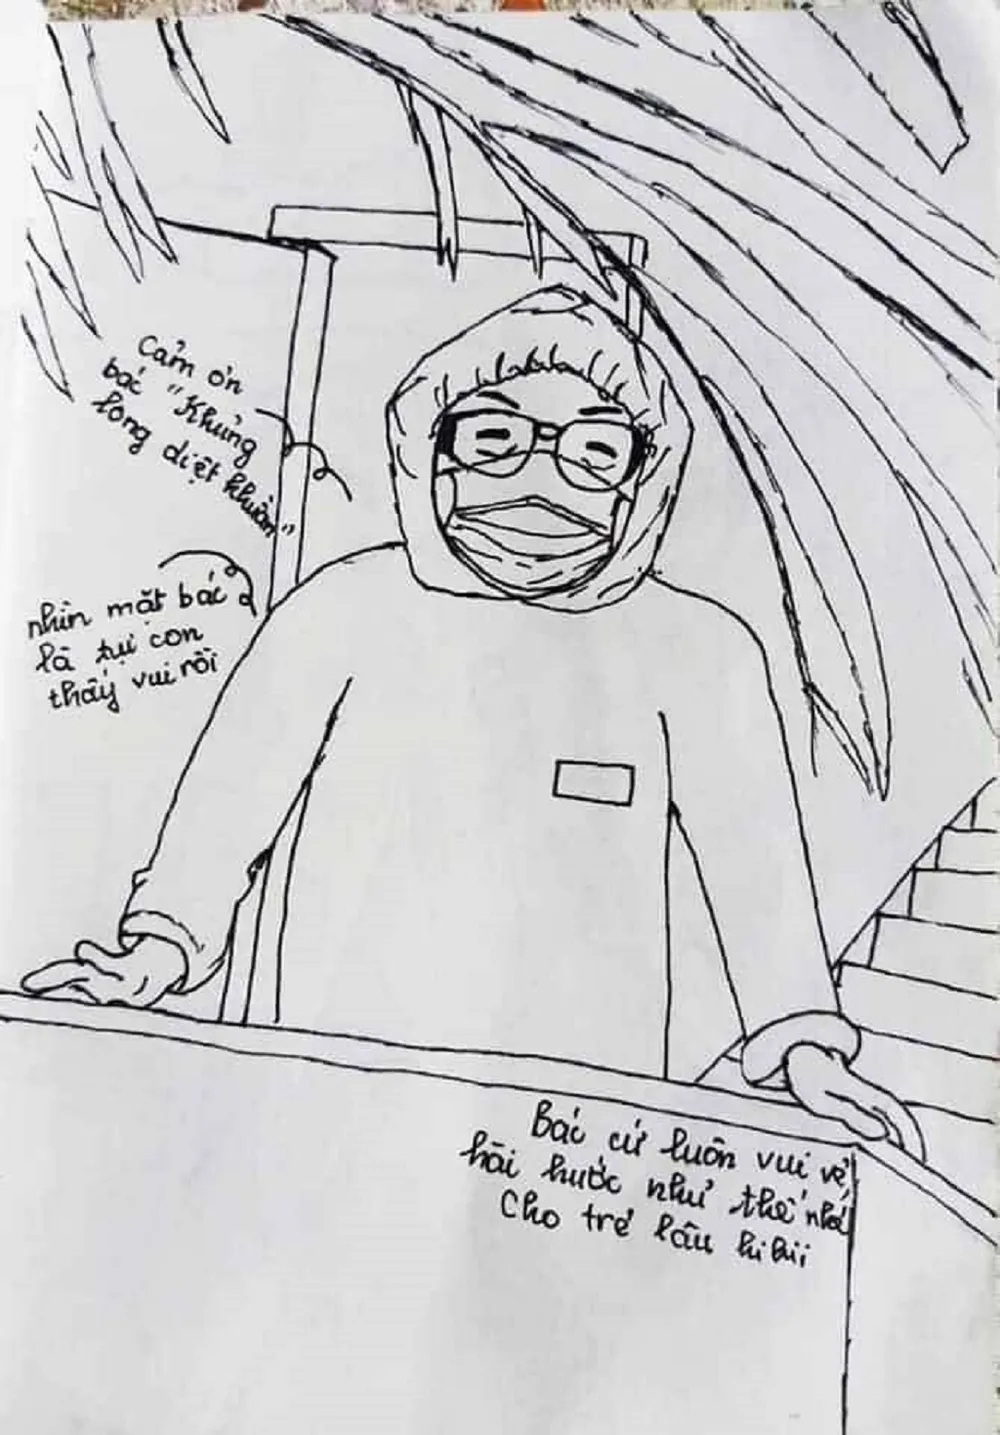 Cảm ơn
bác "Khủng
long diệt khuẩn"
nhìn mặt bác
là tụi con
thấy vui rồi
Bác cứ luôn vui vẻ,
hài hước như thế nhá
Cho trẻ lâu hi hii